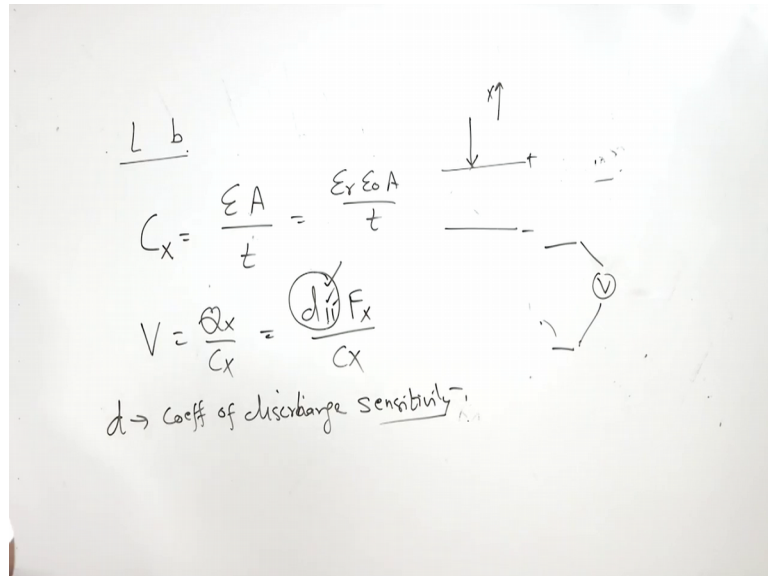 L b
x↑
Cx = εA/t = εr ε0 A/t
+
-
V = Qx/Cx = dii Fx/Cx
V
d → coeff of discharge sensitivity